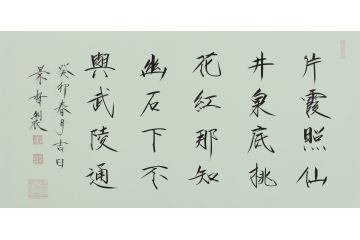 片霞照仙
井泉底桃
花紅那知
幽石下不
與武陵通
癸卯春月吉日